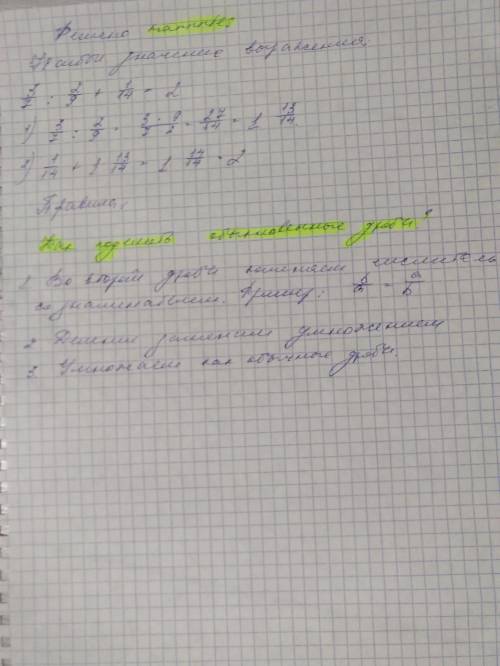 Решено
Найти значение выражения
3/7 : 2/9 + 1/14 = 2
1) 3/7 : 2/9 = 3·9/7·2 = 27/14 = 1 13/14
2) 1/14 + 1 13/14 = 1 14/14 = 2
Правило:
Как поделить обыкновенные дроби?
1. Во второй дроби поменяем числитель
со знаменателем. Пример: b/a = a/b
2. Деление заменяем умножением
3. Умножаем как обычные дроби.